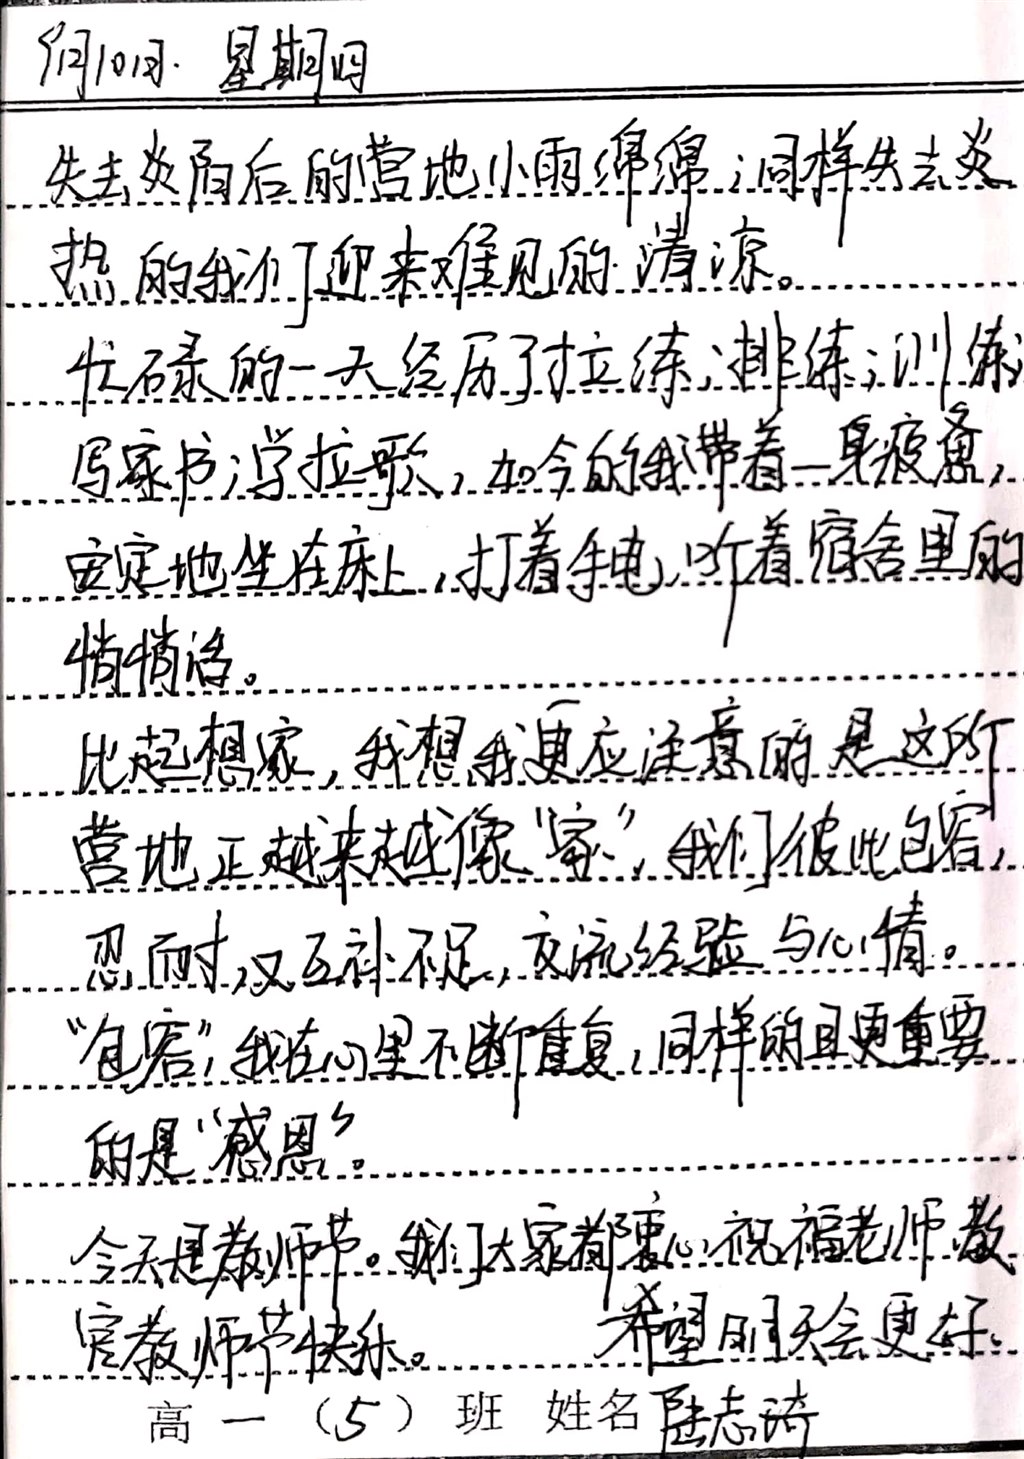 9月10日. 星期四
失去炎阳后的营地小雨绵绵；同样失去炎
热的我们迎来难见的清凉。
忙碌的一天经历了拉练；排练；训练；
写家书；学拉歌，如今的我带着一身疲惫，
安定地坐在床上，打着手电，听着宿舍里的
悄悄话。
比起想家，我想我更应注意的是这所
营地正越来越像“家”，我们彼此包容，
忍耐，又互补不足，交流经验与心情。
“包容”，我在心里不断重复，同样的且更重要
的是“感恩”。
今天是教师节。我们大家都衷心祝福老师教
官教师节快乐。 希望明天会更好。
高一（5）班 姓名 陆志琦